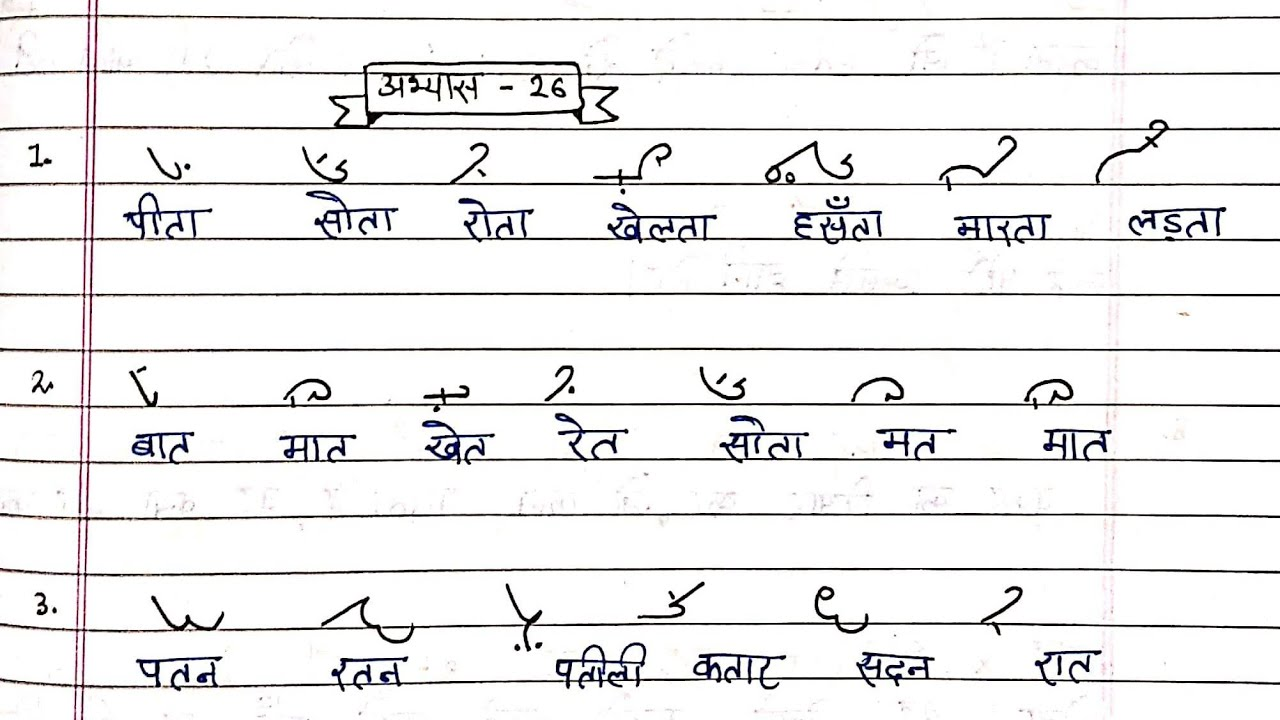 अभ्यास - 26
1.
पीता सोता रोता खेलता हसँता मारता लड़ता
2.
बात मात खेत रेत सोता मत मात
3.
पतन रतन पतीली कतार सदन रात